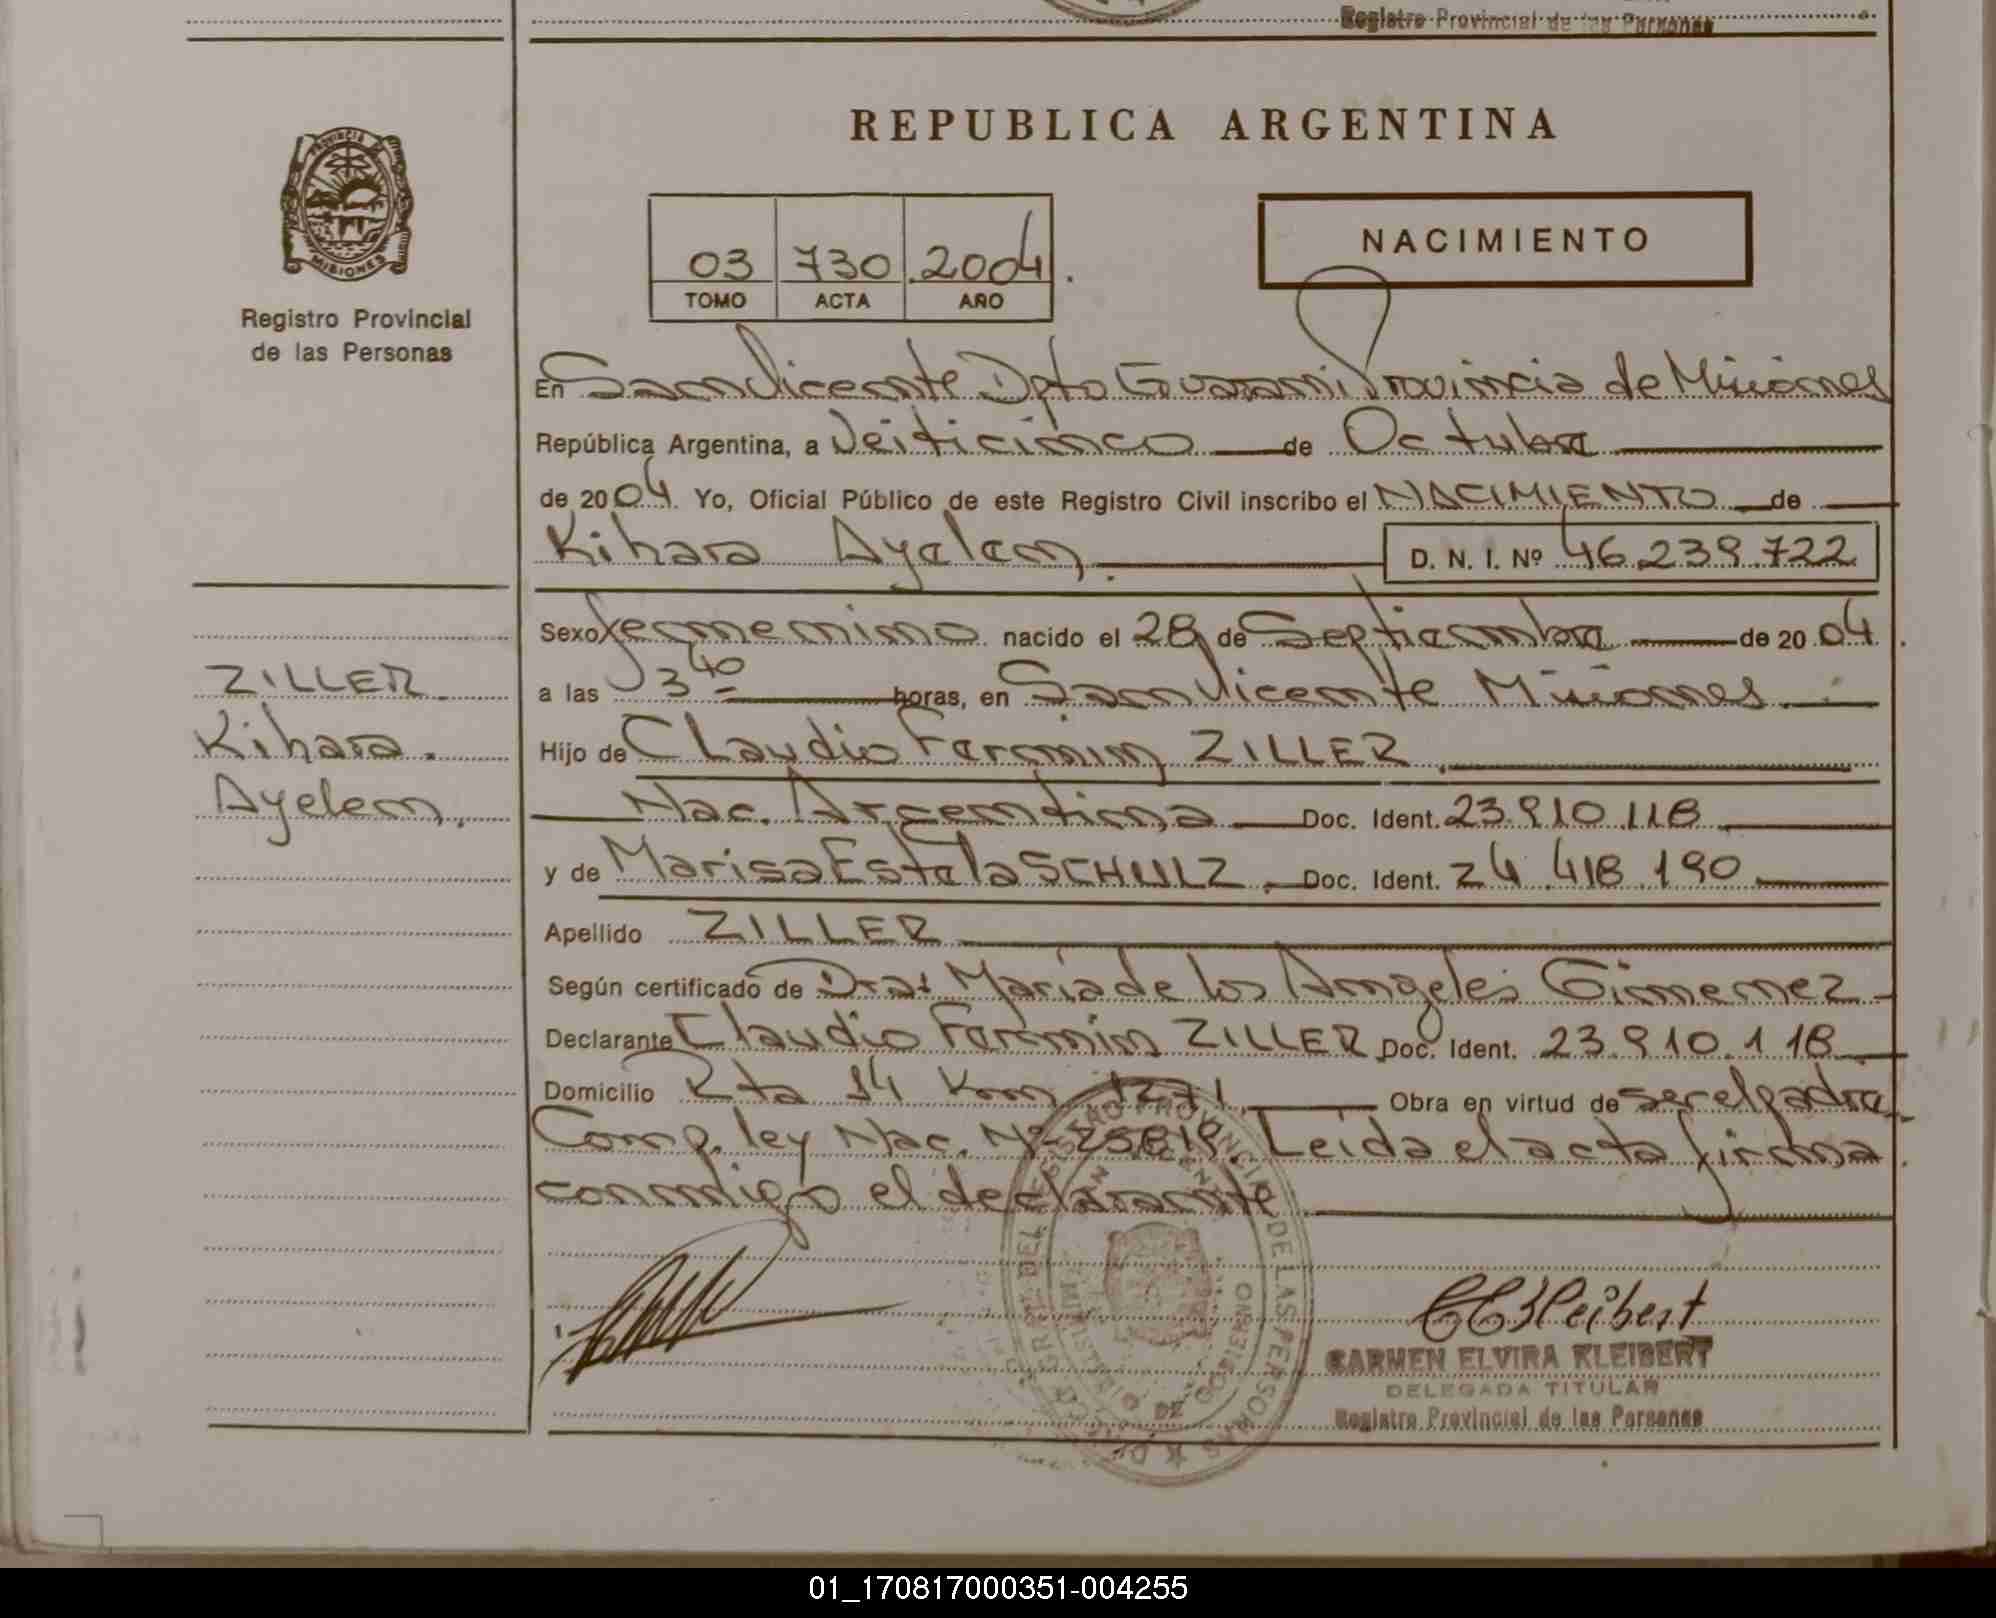 Registro Provincial de las Personas
PROVINCIA DE
MISIONES
Registro Provincial
de las Personas
REPUBLICA ARGENTINA
03 730 2004
TOMO ACTA AÑO
NACIMIENTO
En San Vicente Dpto Guarani Provincia de Misiones
República Argentina, a Veiticinco de Octubre
de 2004 Yo, Oficial Público de este Registro Civil inscribo el NACIMIENTO de
Kihara Ayelen D. N. I. Nº 46.239.722
Sexo femenino nacido el 28 de Septiembre de 2004
a las 3 40 horas, en San Vicente Misiones
Hijo de Claudio Fermin ZILLER
Nac. Argentina Doc. Ident. 23.910.118
y de Marisa Estela SCHULZ Doc. Ident. 24.418.190
Apellido ZILLER
Según certificado de Dra: Maria de los Angeles Gimenez
Declarante Claudio Fermin ZILLER Doc. Ident. 23.910.118
Domicilio Rta 14 Km 1271 Obra en virtud de ser el padre
Comp. ley Nac. Nº 25819. Leida el acta firma
conmigo el declarante
ZILLER
Kihara
Ayelen.
CEKleibert
CARMEN ELVIRA KLEIBERT
DELEGADA TITULAR
Registro Provincial de las Personas
01_170817000351-004255